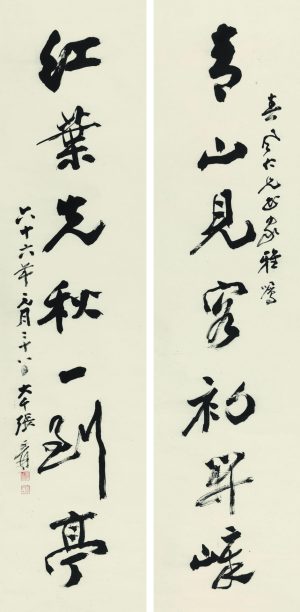 青山見客初崢嶸
仁兄方家雅
紅葉先秋一到亭
六十六年元月二十八日 大千張爰